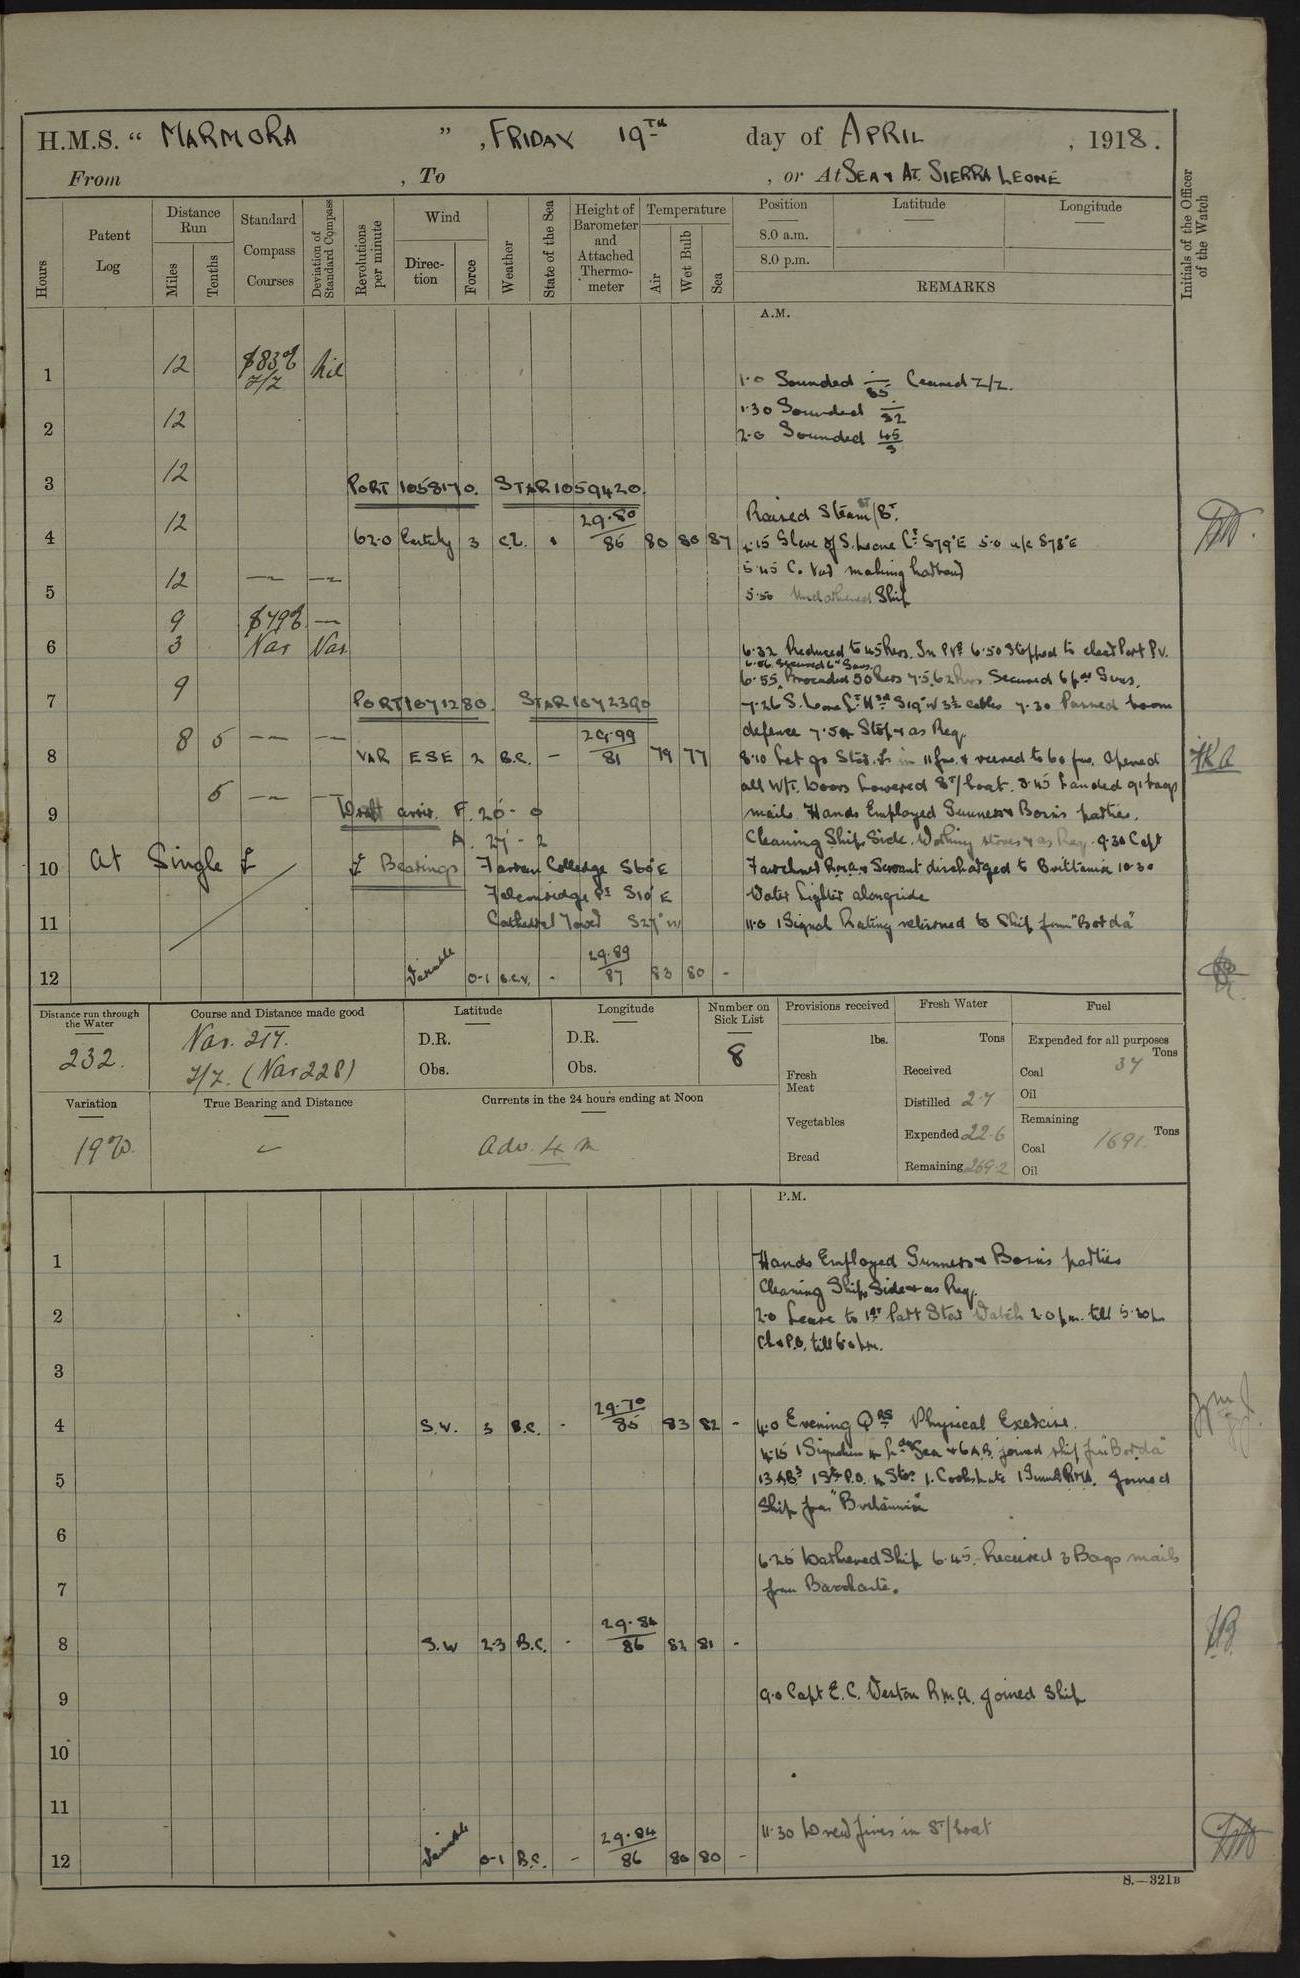 H.M.S. " MARMORA ", FRIDAY 19TH day of APRIL, 1918.
From , To , or At SEA & AT SIERRA LEONE
Hours
Patent Log
Distance Run
Miles
Tenths
Standard Compass Courses
Deviation of Standard Compass
Revolutions per minute
Wind
Direction
Force
Weather
State of the Sea
Height of Barometer and Attached Thermometer
Temperature
Air
Wet Bulb
Sea
Position
8.0 a.m.
8.0 p.m.
Latitude
Longitude
REMARKS
Initials of the Officer of the Watch
A.M.
1 12 Z/Z Nil
1.0 Sounded 85 Ceased Z/Z.
2 12
1.30 Sounded
2.0 Sounded 45
3 12
PORT 1058170. STAR 1059420.
4 12 62.0 3 29.80 86 80 80 87
Raised Steam
4.15 S. Leone S79°E 5.0 a/c S78°E
5 12
5.45
5.50 Ship
9
6 3 Var Var
6.32 Reduced to 45 Revs. In PVs 6.50 Stopped to clear Port P.V.
6.56 Secured 6" Guns.
7 9
6.55 Proceeded 50 Revs 7.5. 62 Revs Secured 6 pdr Guns.
PORT 1071280. STAR 1072390
7.26 S. Leone Lt H S19°W 3½ cables 7.30 Passed boom
defence Stop & as Req.
8 8 5 VAR ESE 2 B.C. - 29.99 81 79 77
8.10 Let go Star. in 11 fms. & veered to 60 fms. Opened
all W/T. Doors Lowered St/boat. 8.45 Landed 91 bags
9 5
Draft arriv. F. 26-0
A. 27-2
mails. Hands Employed Gunners & Bosns parties.
Cleaning Ships Side. Working stores & as Req. 9.30 Capt
10 At Single
Bearings Colledge S60°E
R.M.A. & Servant discharged to Brittania 10.30
Pt S10°E
Water Lighter alongside
11 Cathedral Tower S27°W
11.0 1 Signal Rating returned to Ship from "Borda"
12 Variable 0-1 B.C.V. - 29.89 87 83 80 -
Distance run through the Water
232.
Course and Distance made good
Var. 217.
Z/Z. (Var 228)
Latitude
D.R.
Obs.
Longitude
D.R.
Obs.
Number on Sick List
8
Provisions received
lbs.
Fresh Meat
Vegetables
Bread
Fresh Water
Tons
Received
Distilled 2.7
Expended 22.6
Remaining 269.2
Fuel
Expended for all purposes
Tons
Coal 37
Oil
Remaining
Tons
Coal 1691.
Oil
Variation
19°W.
True Bearing and Distance
Currents in the 24 hours ending at Noon
Adv. 4 m
P.M.
1
Hands Employed Gunners & Bosns parties
Cleaning Ships Side & as Req.
2
2.0 Leave to 1st Part Star Watch 2.0 pm. till 5.30 pm
Ch & P.O. till 6.0 pm.
3
4 S.W. 3 B.C. - 29.70 85 83 82 -
4.0 Evening Qrs Physical Exercise.
4.15 1 Signalman 4 Ldg Sea & 6 A.B. joined ship from "Borda"
5
13 ABs 1 St P.O. 4 Stos 1. Cooks mate R.M.A. Joined
Ship from "Britannia"
6
6.25 Darkened Ship 6.45. Received 3 Bags mails
7
from Bacchante.
8 S.W 2-3 B.C. - 29.84 86 82 81 -
9
9.0 Capt E. C. Weston R.M.A. joined ship
10
11
11.30 Drew fires in St/boat
12 Variable 0-1 B.C. - 29.84 86 80 80 -
S.—321B